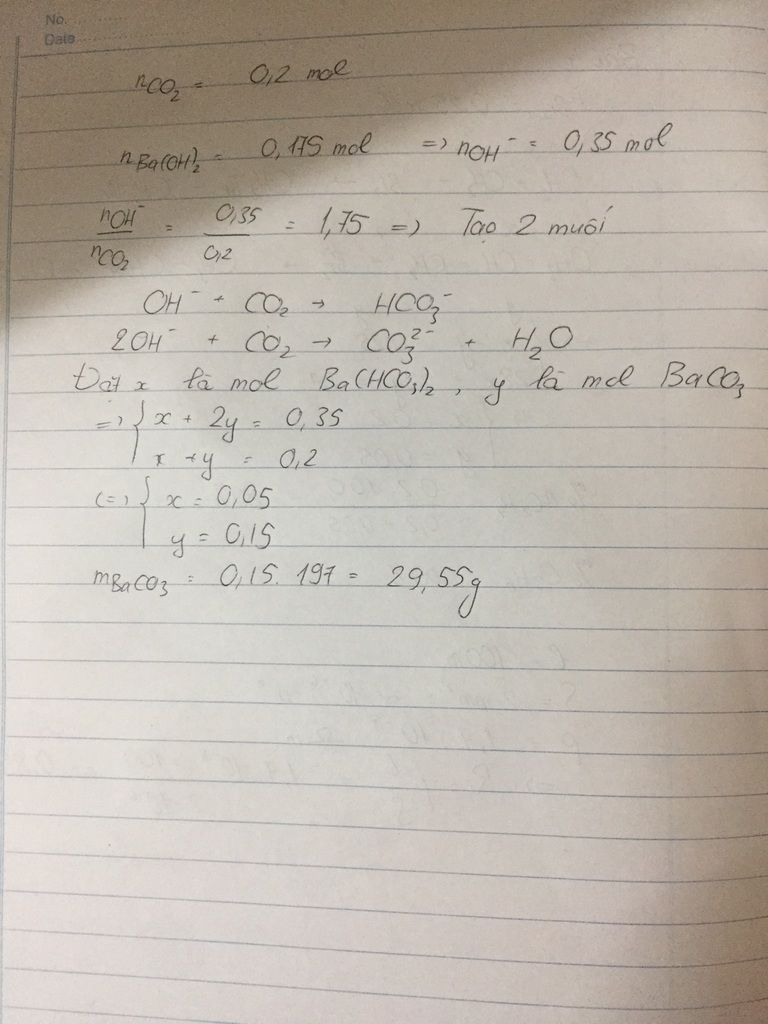 No.
Date
nCO₂ = 0,2 mol
nBa(OH)₂ = 0,175 mol => nOH⁻ = 0,35 mol
nOH⁻/nCO₂ = 0,35/0,2 = 1,75 => Tạo 2 muối
OH⁻ + CO₂ → HCO₃⁻
2OH⁻ + CO₂ → CO₃²⁻ + H₂O
Đặt x là mol Ba(HCO₃)₂, y là mol BaCO₃
=> { x + 2y = 0,35
x + y = 0,2
<=> { x = 0,05
y = 0,15
mBaCO₃ = 0,15. 197 = 29,55g